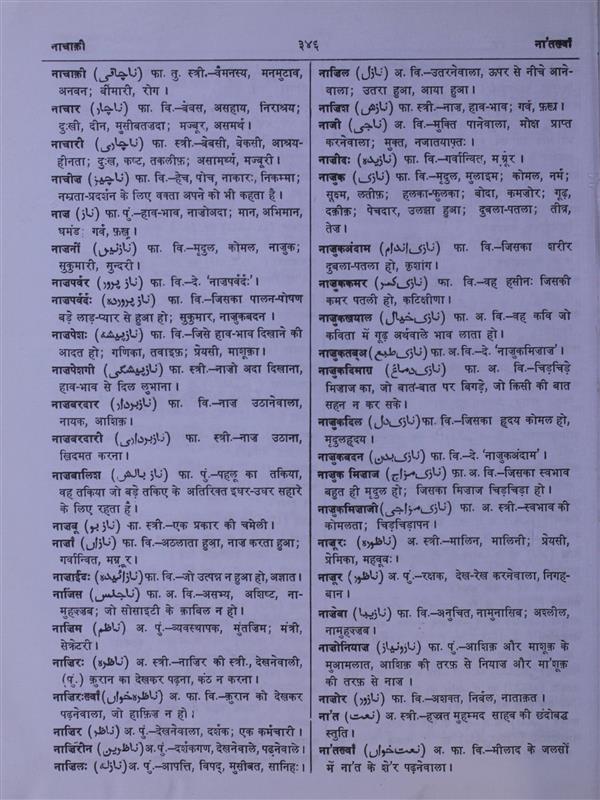 नाचाक़ी
३४६
ना'तख़्वाँ
नाचाक़ी (ناچاقی) फा. तु. स्त्री.–वैमनस्य, मनमुटाव,
अनबन; बीमारी, रोग।
नाचार (ناچار) फा. वि.–बेबस, असहाय, निराश्रय;
दुःखी, दीन, मुसीबतज़दा; मज्बूर, असमर्थ।
नाचारी (ناچاری) फा. स्त्री.–बेबसी, बेकसी, आश्रय-
हीनता; दुःख, कष्ट, तकलीफ़; असामर्थ्य, मज्बूरी।
नाचीज़ (ناچیز) फा. वि.–हेच, पोच, नाकारः; निकम्मा;
नम्रता-प्रदर्शन के लिए वक्ता अपने को भी कहता है।
नाज़ (ناز) फा. पुं.–हाव-भाव, नाजोअदा; मान, अभिमान,
घमंड; गर्व, फ़ख्र।
नाज़नीं (نازنیں) फा. वि.–मृदुल, कोमल, नाज़ुक;
सुकुमारी, सुन्दरी।
नाज़पर्वर (ناز پرور) फा. वि.–दे. 'नाज़पर्वर्दः'।
नाज़पर्वर्दः (ناز پروردہ) फा. वि.–जिसका पालन-पोषण
बड़े लाड़-प्यार से हुआ हो; सुकुमार, नाज़ुकबदन।
नाज़पेशः (ناز پیشہ) फा. वि.–जिसे हाव-भाव दिखाने की
आदत हो; गणिका, तवाइफ़; प्रेयसी, माशूक़ा।
नाज़पेशगी (ناز پیشگی) फा. स्त्री.–नाज़ो अदा दिखाना,
हाव-भाव से दिल लुभाना।
नाज़बरदार (ناز بردار) फा. वि.–नाज़ उठानेवाला,
नायक, आशिक़।
नाज़बरदारी (ناز برداری) फा. स्त्री.–नाज़ उठाना,
खिदमत करना।
नाज़बालिश (ناز بالش) फा. पुं.–पहलू का तकिया,
वह तकिया जो बड़े तकिए के अतिरिक्त इधर-उधर सहारे
के लिए रहता है।
नाज़बू (ناز بو) फा. स्त्री.–एक प्रकार की चमेली।
नाज़ाँ (نازاں) फा. वि.–अठलाता हुआ, नाज़ करता हुआ;
गर्वान्वित, मग्रूर।
नाज़ाईदः (نازائیدہ) फा. वि.–जो उत्पन्न न हुआ हो, अज्ञात।
नाजिंस (ناجنس) फा. अ. वि.–असभ्य, अशिष्ट, ना-
मुहज़्ज़ब; जो सोसाइटी के क़ाबिल न हो।
नाज़िम (ناظم) अ. पुं.–व्यवस्थापक, मुंतज़िम; मंत्री,
सेक्रेटरी।
नाज़िरः (ناظرہ) अ. स्त्री.–नाज़िर की स्त्री., देखनेवाली,
(पुं.) क़ुरान का देखकर पढ़ना, कंठ न करना।
नाज़िरःख़्वाँ (ناظرہ خواں) अ. फा. वि.–क़ुरान को देखकर
पढ़नेवाला, जो हाफ़िज़ न हो।
नाज़िर (ناظر) अ. पुं.–देखनेवाला, दर्शक; एक कर्मचारी।
नाज़िरीन (ناظرین) अ. पुं.–दर्शकगण, देखनेवाले, पढ़नेवाले।
नाज़िलः (نازلہ) अ. पुं.–आपत्ति, विपद्, मुसीबत, सानिहः।
नाज़िल (نازل) अ. वि.–उतरनेवाला, ऊपर से नीचे आने-
वाला; उतरा हुआ, आया हुआ।
नाज़िश (نازش) फा. स्त्री.–नाज़, हाव-भाव; गर्व, फ़ख्र।
नाजी (ناجی) अ. वि.–मुक्ति पानेवाला, मोक्ष प्राप्त
करनेवाला; मुक्त, नजातयाफ़्तः।
नाज़ीदः (نازیدہ) फा. वि.–गर्वान्वित, मग्रूर।
नाज़ुक (نازک) फा. वि.–मृदुल, मुलाइम; कोमल, नर्म;
सूक्ष्म, लतीफ़; हलका-फुलका; बोदा, कमज़ोर; गूढ़,
दक़ीक़; पेचदार, उलझा हुआ; दुबला-पतला; तीव्र,
तेज़।
नाज़ुकअंदाम (نازک اندام) फा. वि.–जिसका शरीर
दुबला-पतला हो, कृशांग।
नाज़ुककमर (نازک کمر) फा. वि.–वह हसीनः जिसकी
कमर पतली हो, कटिक्षीणा।
नाज़ुकख़याल (نازک خیال) फा. अ. वि.–वह कवि जो
कविता में गूढ़ अर्थवाले भाव लाता हो।
नाज़ुकतबअ (نازک طبع) फा. अ. वि.–दे. 'नाज़ुकमिज़ाज'।
नाज़ुकदिमाग़ (نازک دماغ) फा. अ. वि.–चिड़चिड़े
मिज़ाज का, जो बात-बात पर बिगड़े, जो किसी की बात
सहन न कर सके।
नाज़ुकदिल (نازک دل) फा. वि.–जिसका हृदय कोमल हो,
मृदुलहृदय।
नाज़ुकबदन (نازک بدن) फा. वि.–दे. 'नाज़ुकअंदाम'।
नाज़ुक मिज़ाज (نازک مزاج) फा. अ. वि.–जिसका स्वभाव
बहुत ही मृदुल हो; जिसका मिज़ाज चिड़चिड़ा हो।
नाज़ुकमिज़ाजी (نازک مزاجی) फा. अ. स्त्री.–स्वभाव की
कोमलता; चिड़चिड़ापन।
नाज़ूरः (ناظورہ) अ. स्त्री.–मालिन, मालिनी; प्रेयसी,
प्रेमिका, महबूबः।
नाज़ूर (ناظور) अ. पुं.–रक्षक, देख-रेख करनेवाला, निगह-
बान।
नाज़ेबा (نازیبا) फा. वि.–अनुचित, नामुनासिब; अश्लील,
नामुहज़्ज़ब।
नाज़ोनियाज़ (نازونیاز) फा. पुं.–आशिक़ और माशूक़ के
मुआमलात, आशिक़ की तरफ़ से नियाज़ और मा'शूक़
की तरफ़ से नाज़।
नाज़ोर (نازور) फा. वि.–अशक्त, निर्बल, नाताक़त।
ना'त (نعت) अ. स्त्री.–हज़्रत मुहम्मद साहब की छंदोबद्ध
स्तुति।
ना'तख़्वाँ (نعت خواں) अ. फा. वि.–मीलाद के जलसों
में ना'त के शे'र पढ़नेवाला।